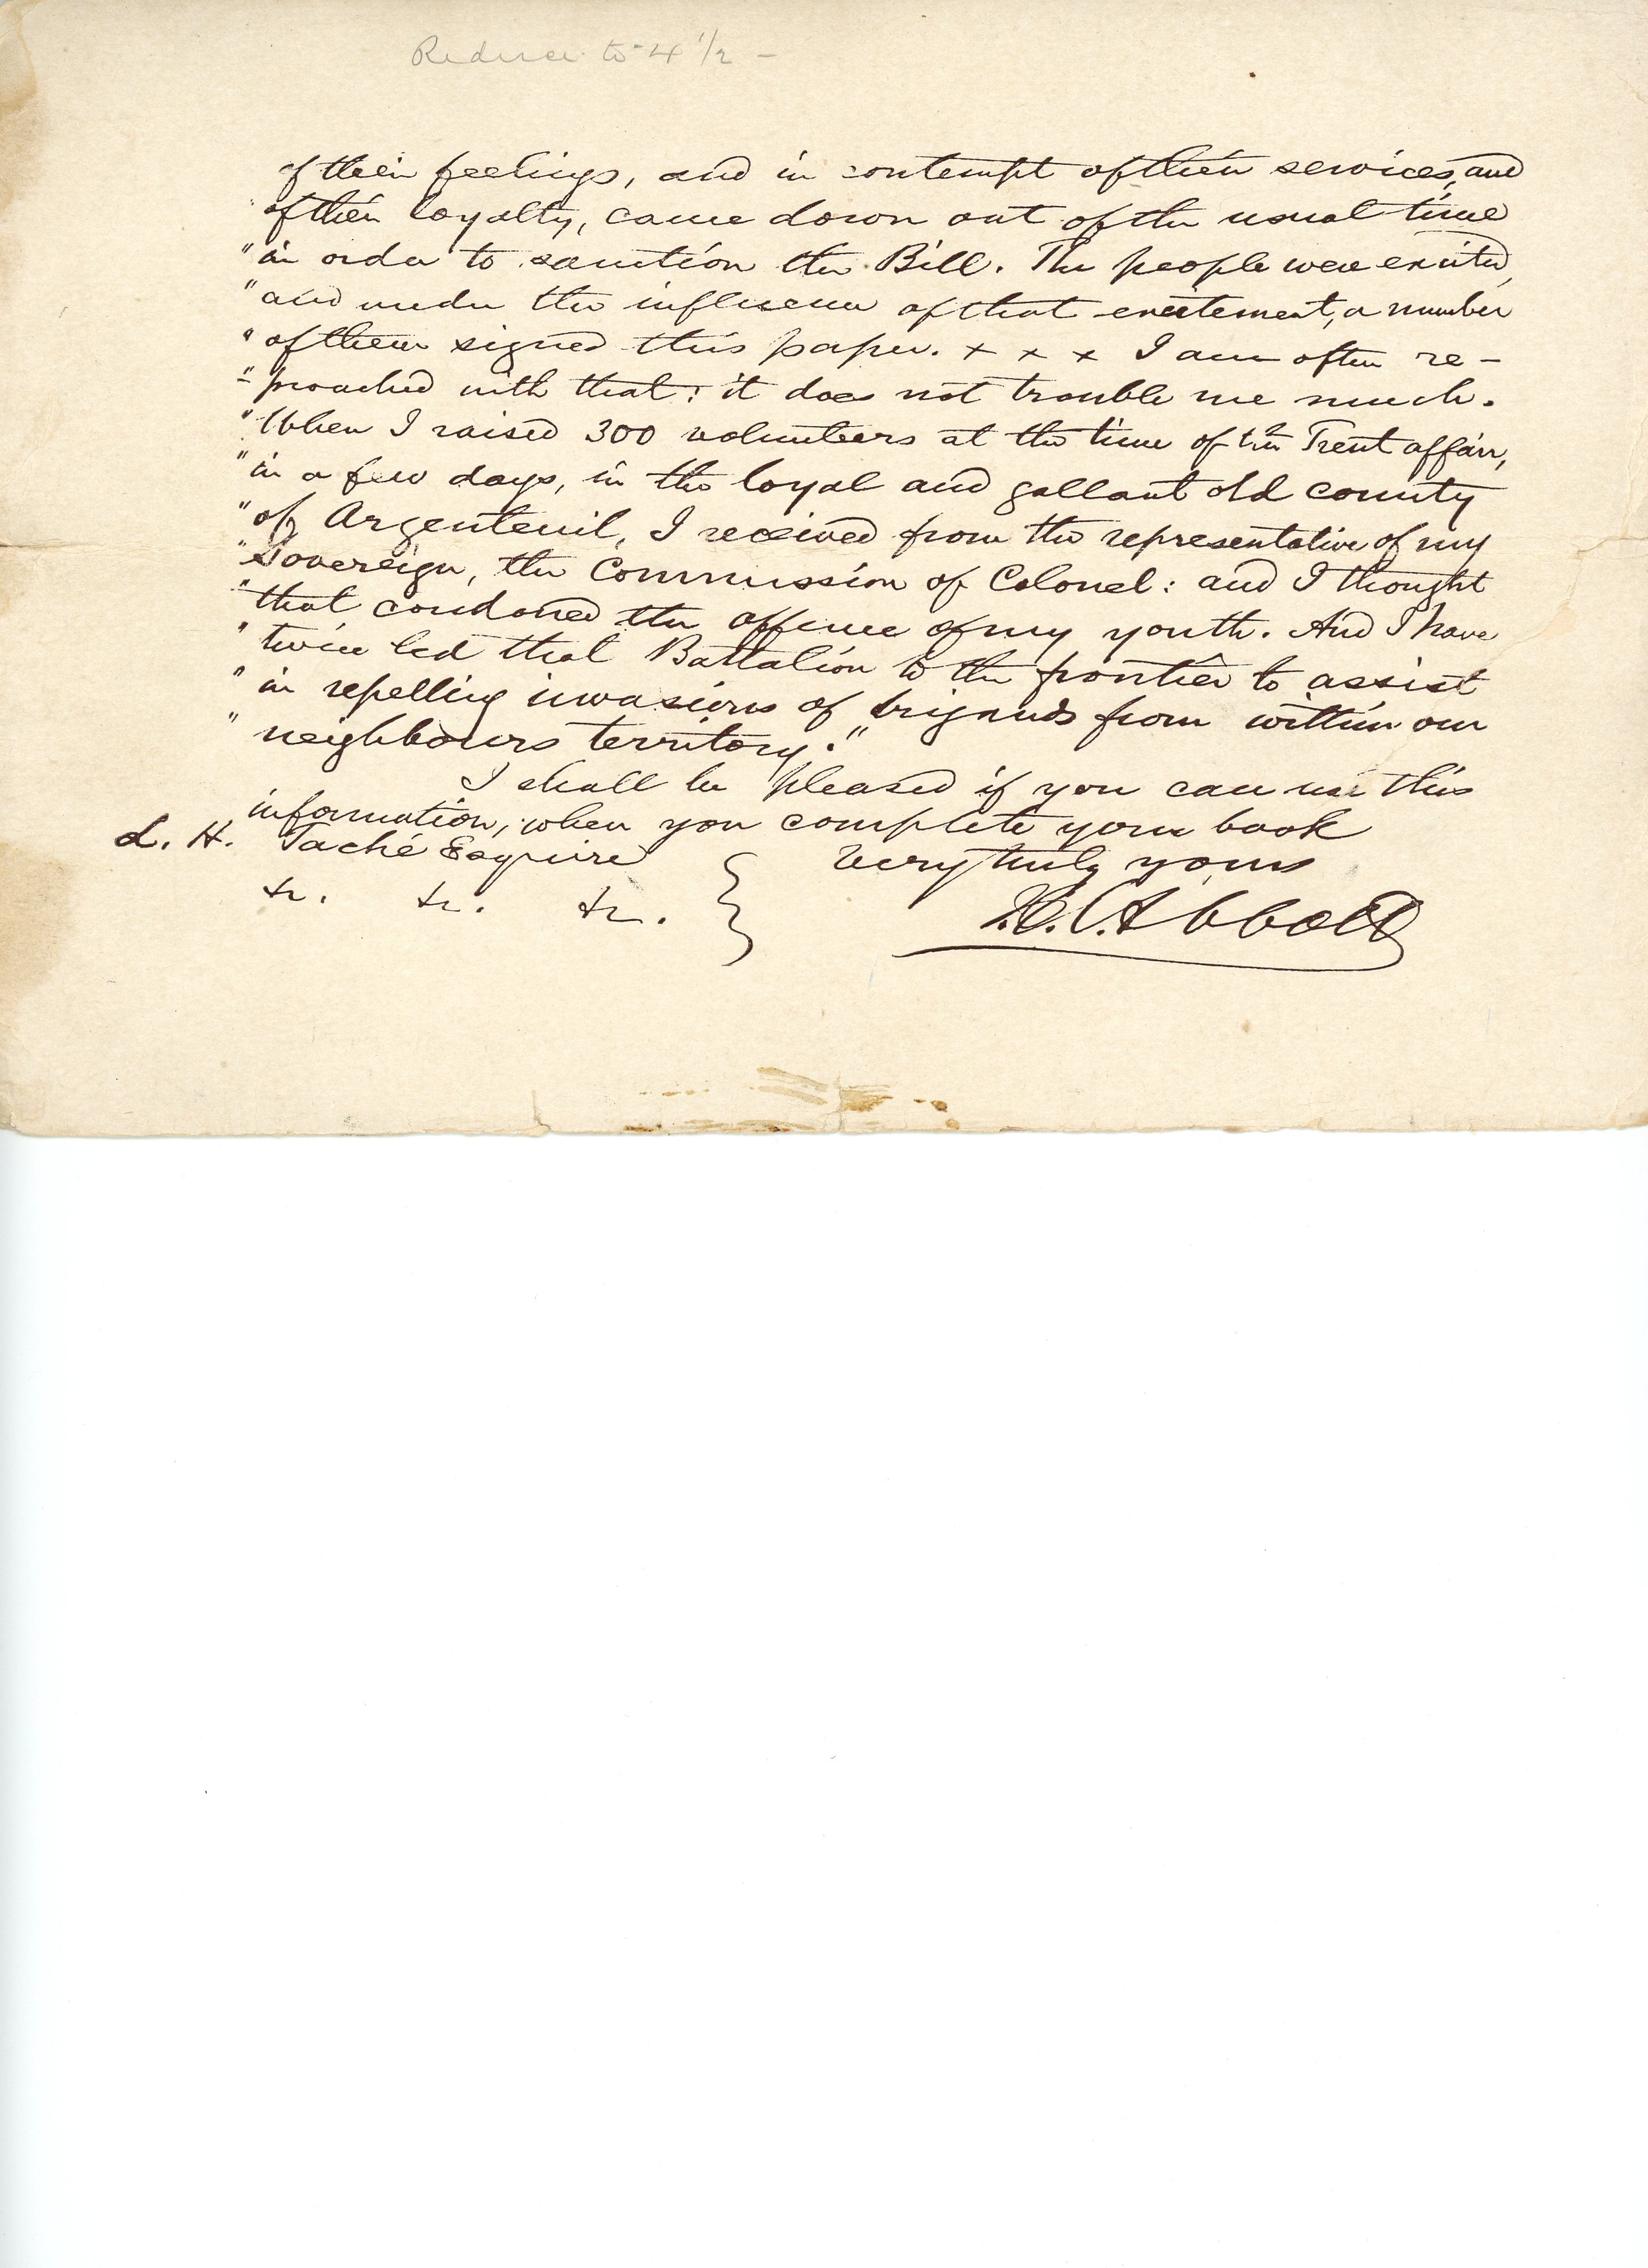 Reduce to 4 1/2 –
of their feelings, and in contempt of their services, and
" of their loyalty, came down out of the usual time
" in order to sanction the Bill. The people were excited,
" and under the influence of that excitement, a number
" of them signed this paper. x x x I am often re-
" proached with that: it does not trouble me much.
" When I raised 300 volunteers at the time of the Trent affair,
" in a few days, in the loyal and gallant old county
" of Argenteuil, I received from the representative of my
" Sovereign, the Commission of Colonel: and I thought
" that condoned the offence of my youth. And I have
" twice led that Battalion to the frontier to assist
" in repelling invasions of brigands from within our
" neighbours territory."
I shall be pleased if you can use this
information, when you complete your book
L. H. Taché Esquire
Very truly yours
&c. &c. &c.
J.J.C. Abbott